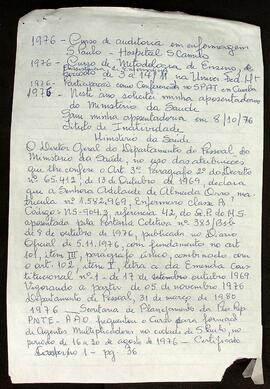 1976 - Curso de auditoria em enfermagem
S. Paulo - Hospital S Camilo
1976 - Curso de Metodologia de Ensino, de
período de 3 a 14/11 na Univer. Fed. Mt
1976 - Participação como Conferencista no SPAT em Cuiabá
1976 - Neste ano solicitei minha aposentadoria
do Ministério da Saúde
Saiu minha aposentadoria em 8/10/76
Título de Inatividade
Ministério da Saúde
O Diretor Geral do Departamento de Pessoal do
Ministério da Saúde, no uso das atribuições
que lhe confere o Art 3º Paragrafo 2º do Decreto
nº 65.412, de 13 de Outubro de 1969, declara
que a Senhora Adelaide de Almeida Orro, ma
tricula nº 1.582.969, Enfermeiro classe A,
Código NS-904.2, referencia 42, do Q.P. do M.S.
aposentada pela Portaria Coletiva nº 383/Bsb
de 8 de outubro de 1976, publicada no Diario
Oficial de 5.11.1976, com fundamento no art
101, item III, paragrafo único, combinado com
o art. 102, item I, letra a da Emenda Cons
titucional nº 1 de 17 de setembro outubro 1969
Vigorando a partir de 05 de novembro 1976
Departamento de Pessoal, 31 de março de 1980
1976 - Secretaria de Planejamento da Pres. Rep.
PNTE - AAO frequentou o Curso para formação
de Agentes Multiplicadores na cidade de S. Paulo, no
periodo de 16 a 20 de agosto de 1976 - Certificado
1 - pg 36